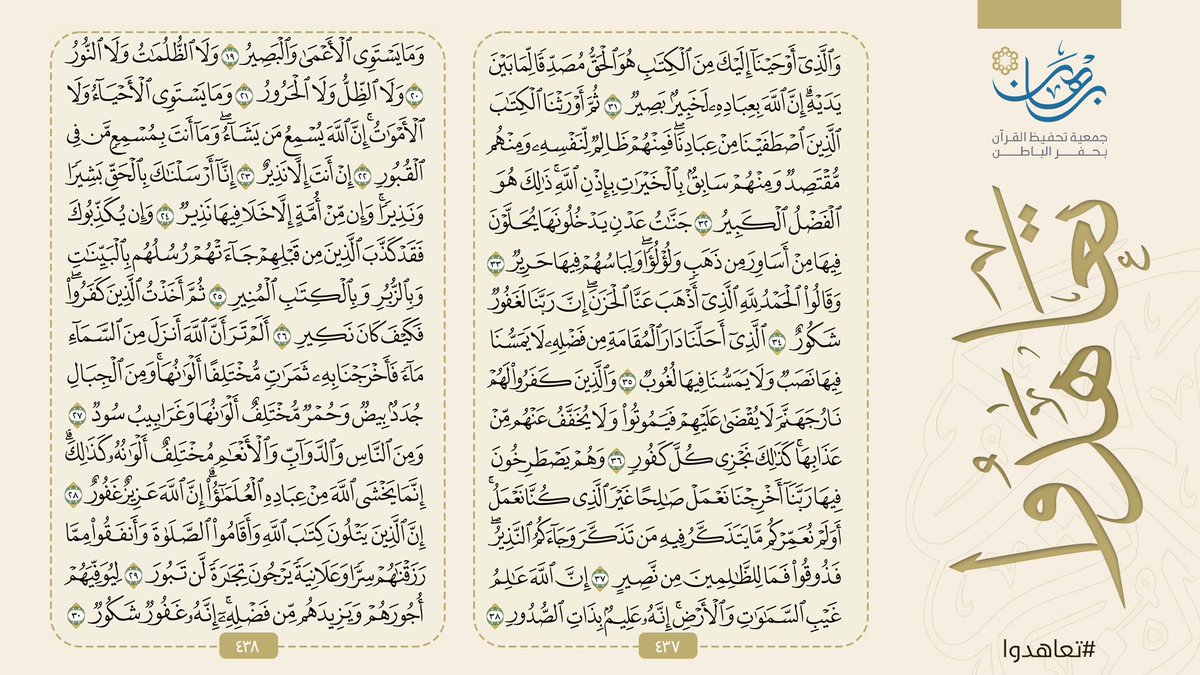 برهان
جمعية تحفيظ القرآن
بحفر الباطن
تعاهدوا
#تعاهدوا
وَٱلَّذِىٓ أَوْحَيْنَآ إِلَيْكَ مِنَ ٱلْكِتَٰبِ هُوَ ٱلْحَقُّ مُصَدِّقًا لِّمَا بَيْنَ
يَدَيْهِۗ إِنَّ ٱللَّهَ بِعِبَادِهِۦ لَخَبِيرٌۢ بَصِيرٌ ٣١ ثُمَّ أَوْرَثْنَا ٱلْكِتَٰبَ
ٱلَّذِينَ ٱصْطَفَيْنَا مِنْ عِبَادِنَاۖ فَمِنْهُمْ ظَالِمٌ لِّنَفْسِهِۦ وَمِنْهُم
مُّقْتَصِدٌ وَمِنْهُمْ سَابِقٌۢ بِٱلْخَيْرَٰتِ بِإِذْنِ ٱللَّهِۚ ذَٰلِكَ هُوَ
ٱلْفَضْلُ ٱلْكَبِيرُ ٣٢ جَنَّٰتُ عَدْنٍ يَدْخُلُونَهَا يُحَلَّوْنَ
فِيهَا مِنْ أَسَاوِرَ مِن ذَهَبٍ وَلُؤْلُؤًاۖ وَلِبَاسُهُمْ فِيهَا حَرِيرٌ ٣٣
وَقَالُوا۟ ٱلْحَمْدُ لِلَّهِ ٱلَّذِىٓ أَذْهَبَ عَنَّا ٱلْحَزَنَۖ إِنَّ رَبَّنَا لَغَفُورٌ
شَكُورٌ ٣٤ ٱلَّذِىٓ أَحَلَّنَا دَارَ ٱلْمُقَامَةِ مِن فَضْلِهِۦ لَا يَمَسُّنَا
فِيهَا نَصَبٌ وَلَا يَمَسُّنَا فِيهَا لُغُوبٌ ٣٥ وَٱلَّذِينَ كَفَرُوا۟ لَهُمْ
نَارُ جَهَنَّمَ لَا يُقْضَىٰ عَلَيْهِمْ فَيَمُوتُوا۟ وَلَا يُخَفَّفُ عَنْهُم مِّنْ
عَذَابِهَاۚ كَذَٰلِكَ نَجْزِى كُلَّ كَفُورٍ ٣٦ وَهُمْ يَصْطَرِخُونَ
فِيهَا رَبَّنَآ أَخْرِجْنَا نَعْمَلْ صَٰلِحًا غَيْرَ ٱلَّذِى كُنَّا نَعْمَلُۚ
أَوَلَمْ نُعَمِّرْكُم مَّا يَتَذَكَّرُ فِيهِ مَن تَذَكَّرَ وَجَآءَكُمُ ٱلنَّذِيرُۖ
فَذُوقُوا۟ فَمَا لِلظَّٰلِمِينَ مِن نَّصِيرٍ ٣٧ إِنَّ ٱللَّهَ عَٰلِمُ
غَيْبِ ٱلسَّمَٰوَٰتِ وَٱلْأَرْضِۚ إِنَّهُۥ عَلِيمٌۢ بِذَاتِ ٱلصُّدُورِ ٣٨
٤٣٧
وَمَا يَسْتَوِى ٱلْأَعْمَىٰ وَٱلْبَصِيرُ ١٩ وَلَا ٱلظُّلُمَٰتُ وَلَا ٱلنُّورُ
٢٠ وَلَا ٱلظِّلُّ وَلَا ٱلْحَرُورُ ٢١ وَمَا يَسْتَوِى ٱلْأَحْيَآءُ وَلَا
ٱلْأَمْوَٰتُۚ إِنَّ ٱللَّهَ يُسْمِعُ مَن يَشَآءُۖ وَمَآ أَنتَ بِمُسْمِعٍ مَّن فِى
ٱلْقُبُورِ ٢٢ إِنْ أَنتَ إِلَّا نَذِيرٌ ٢٣ إِنَّآ أَرْسَلْنَٰكَ بِٱلْحَقِّ بَشِيرًا
وَنَذِيرًاۚ وَإِن مِّنْ أُمَّةٍ إِلَّا خَلَا فِيهَا نَذِيرٌ ٢٤ وَإِن يُكَذِّبُوكَ
فَقَدْ كَذَّبَ ٱلَّذِينَ مِن قَبْلِهِمْ جَآءَتْهُمْ رُسُلُهُم بِٱلْبَيِّنَٰتِ
وَبِٱلزُّبُرِ وَبِٱلْكِتَٰبِ ٱلْمُنِيرِ ٢٥ ثُمَّ أَخَذْتُ ٱلَّذِينَ كَفَرُوا۟ۖ
فَكَيْفَ كَانَ نَكِيرِ ٢٦ أَلَمْ تَرَ أَنَّ ٱللَّهَ أَنزَلَ مِنَ ٱلسَّمَآءِ
مَآءً فَأَخْرَجْنَا بِهِۦ ثَمَرَٰتٍ مُّخْتَلِفًا أَلْوَٰنُهَاۚ وَمِنَ ٱلْجِبَالِ
جُدَدٌۢ بِيضٌ وَحُمْرٌ مُّخْتَلِفٌ أَلْوَٰنُهَا وَغَرَابِيبُ سُودٌ ٢٧
وَمِنَ ٱلنَّاسِ وَٱلدَّوَآبِّ وَٱلْأَنْعَٰمِ مُخْتَلِفٌ أَلْوَٰنُهُۥ كَذَٰلِكَۗ
إِنَّمَا يَخْشَى ٱللَّهَ مِنْ عِبَادِهِ ٱلْعُلَمَٰٓؤُا۟ۗ إِنَّ ٱللَّهَ عَزِيزٌ غَفُورٌ ٢٨
إِنَّ ٱلَّذِينَ يَتْلُونَ كِتَٰبَ ٱللَّهِ وَأَقَامُوا۟ ٱلصَّلَوٰةَ وَأَنفَقُوا۟ مِمَّا
رَزَقْنَٰهُمْ سِرًّا وَعَلَانِيَةً يَرْجُونَ تِجَٰرَةً لَّن تَبُورَ ٢٩ لِيُوَفِّيَهُمْ
أُجُورَهُمْ وَيَزِيدَهُم مِّن فَضْلِهِۦٓۚ إِنَّهُۥ غَفُورٌ شَكُورٌ ٣٠
٤٣٨